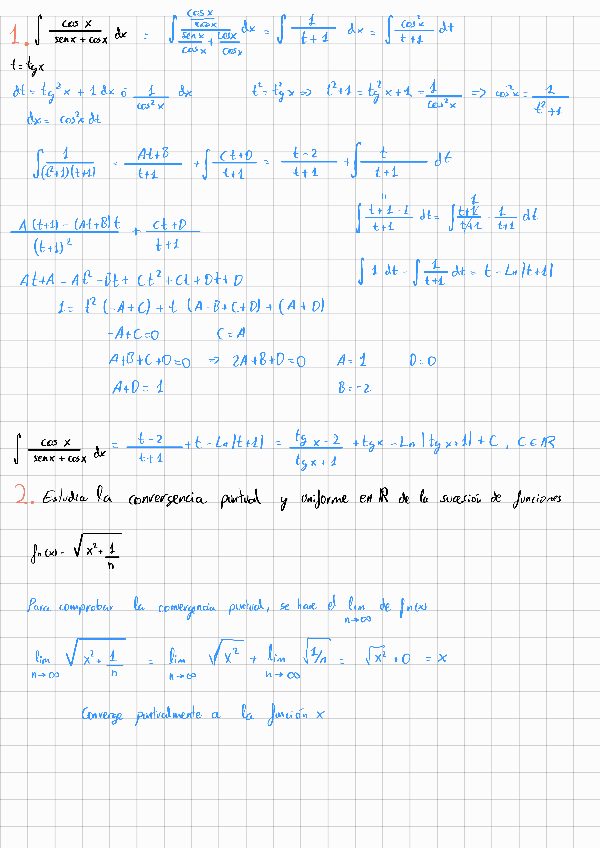 1. ∫ cos x / (sen x + cos x) dx = ∫ (cos x / cos x) / (sen x / cos x + cos x / cos x) dx = ∫ 1 / (t+1) dx = ∫ cos²x / (t+1) dt
t = tg x
dt = tg²x + 1 dx ó 1 / cos²x dx t² = tg²x => t²+1 = tg²x + 1 = 1 / cos²x => cos²x = 1 / (t²+1)
dx = cos²x dt
∫ 1 / (t²+1)(t+1) = (At+B) / (t+1) + ∫ (Ct+D) / (t+1) = (t-2) / (t+1) + ∫ t / (t+1) dt
∫ (t+1-1) / (t+1) dt = ∫ (t+1) / (t+1) 1 - 1 / (t+1) dt
(A(t+1) - (At+B)t) / (t+1)² + (Ct+D) / (t+1)
∫ 1 dt - ∫ 1 / (t+1) dt = t - Ln|t+1|
At+A - At² - Bt + Ct² + Ct + Dt + D
1 = t² (-A+C) + t (A-B+C+D) + (A+D)
-A+C=0 C=A
A+B+C+D=0 => 2A+B+D=0 A=1 D=0
A+D=1 B=-2
∫ cos x / (sen x + cos x) dx = (t-2) / (t+1) + t - Ln|t+1| = (tg x - 2) / (tg x + 1) + tg x - Ln|tg x + 1| + C, C∈ℝ
2. Estudia la convergencia puntual y uniforme en ℝ de la sucesión de funciones
fn(x) = √(x² + 1/n)
Para comprobar la convergencia puntual, se hace el lim n→∞ de fn(x)
lim n→∞ √(x² + 1/n) = lim n→∞ √x² + lim n→∞ √(1/n) = √x² + 0 = x
Converge puntualmente a la función x